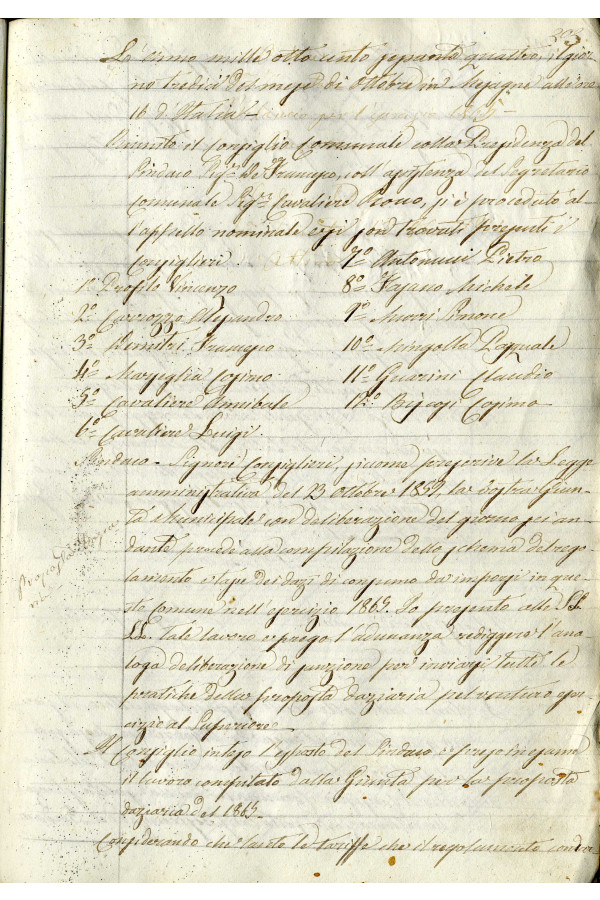 L'anno mille otto cento sessanta quattro, il gior
no tredici del mese di Ottobre in Mesagne alle ore
16 d'Italia
Riunito il Consiglio Comunale colla Presidenza del
Sindaco Sig.r De Francesco, coll'assistenza del Segretario
Comunale Sig.r Cavaliere Rocco, si è proceduto al-
l'appello nominale e si son trovati presenti i
Consiglieri
1º Profilo Vincenzo
2º Carrozzo Alessandro
3º Demitri Francesco
4º Marseglia Cosimo
5º Cavaliere Annibale
6º Cavaliere Luigi
7º Antonucci Pietro
8º Fasano Michele
9º Murri
10º Mingolla Pasquale
11º Guarini Claudio
12º Cosimo
Sindaco - Signori Consiglieri, siccome prescrive la Legge
amministrativa del 23 Ottobre 1859, la vostra Giun-
ta Municipale con deliberazione del giorno sei an-
dante procedè alla compilazione dello schema del rego-
lamento e tasse dei dazi di consumo da imporsi in que-
sto comune nell'esercizio 1865. Io presento alle SS.
LL. tale lavoro e prego l'adunanza rediggere l'ana-
loga deliberazione di per inviarsi tutte le
pratiche della proposta daziaria pel venturo eser-
cizio al Superiore
Il Consiglio inteso l'esposto del Sindaco e preso in esame
il lavoro compilato dalla Giunta per la proposta
daziaria del 1865.
Considerando che tanto le tariffe che il regolamento